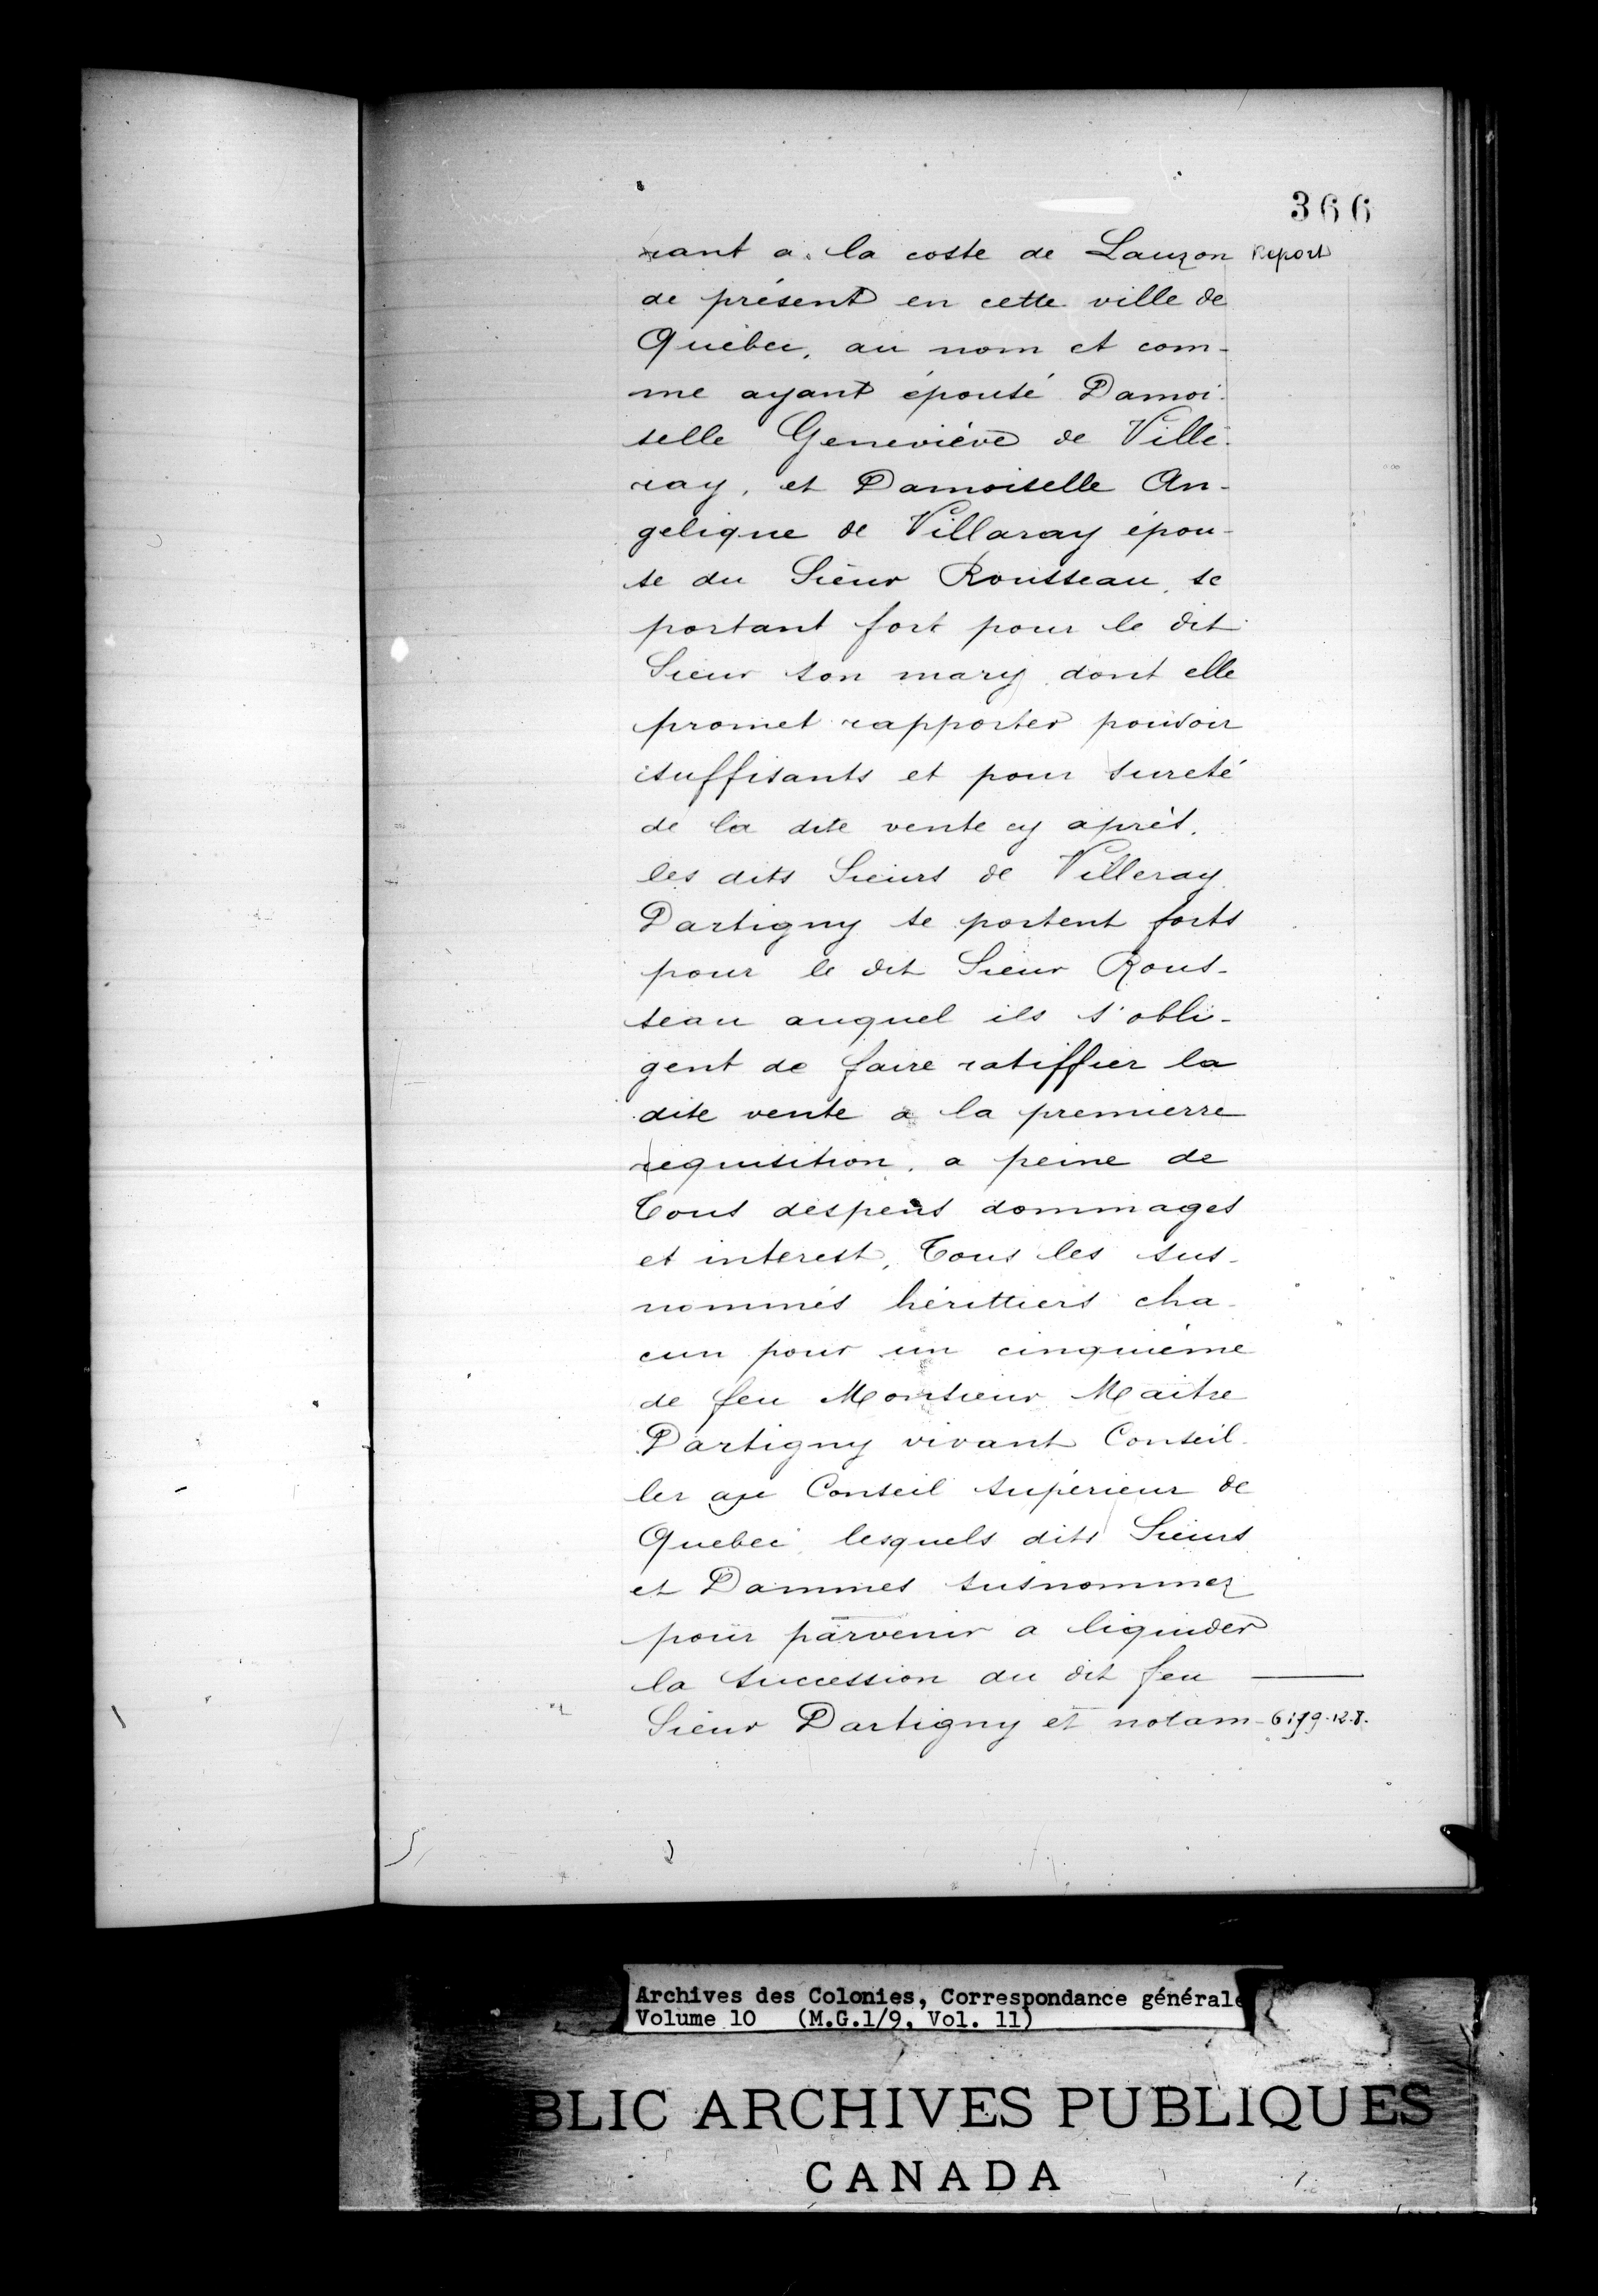 366
rant a la coste de Lauzon Report
de présent en cette ville de
Québec, au nom et com-
me ayant épousé Damoi-
selle Geneviève de Ville-
ray, et Damoiselle An-
gelique de Villaray épou-
se du Sieur Rousseau, se
portant fort pour le dit
Sieur son mary dont elle
promet rapporter pouvoir
suffisants et pour sureté
de la dite vente cy après,
les dits Sieurs de Villeray
Dartigny se portent forts
pour le dit Sieur Rous-
seau auquel ils s'obli-
gent de faire ratiffier la
dite vente a la premierre
requisition, a peine de
Tous despens dommages
et interest, Tous les sus-
nommés hérittiers cha-
cun pour un cinquième
de feu Monsieur Maitre
Dartigny vivant Conseil-
ler au Conseil supérieur de
Quebec, lesquels dits Sieurs
et Dammes susnommez
pour parvenir a liquider
la succession du dit feu
Sieur Dartigny et notam-
Archives des Colonies, Correspondance générale
Volume 10 (M.G.1/9, Vol. 11)
BLIC ARCHIVES PUBLIQUES
CANADA